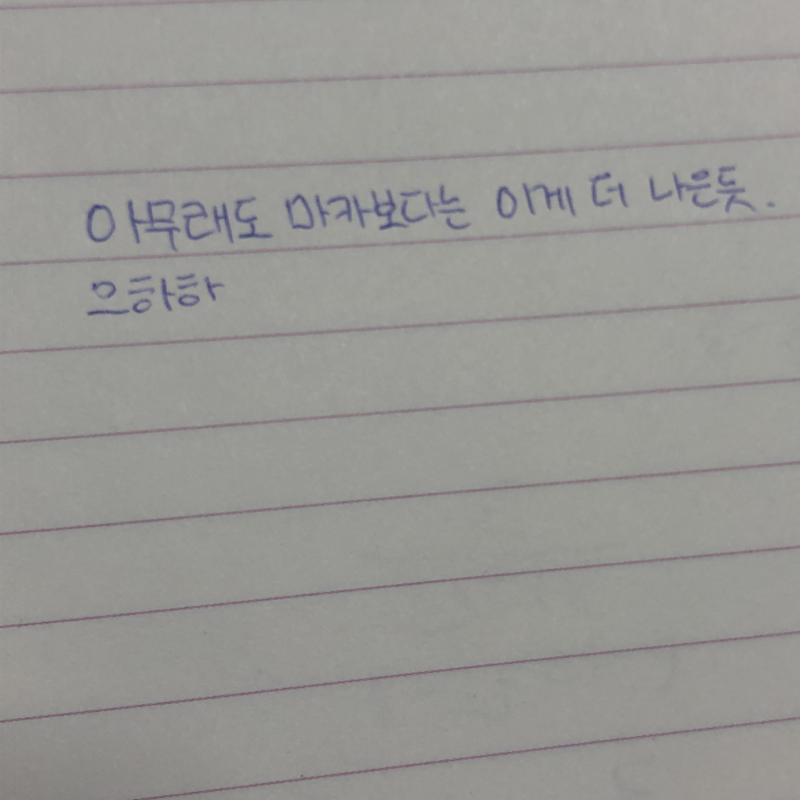 아무래도 마카보다는 이게 더 나은듯.
으하하